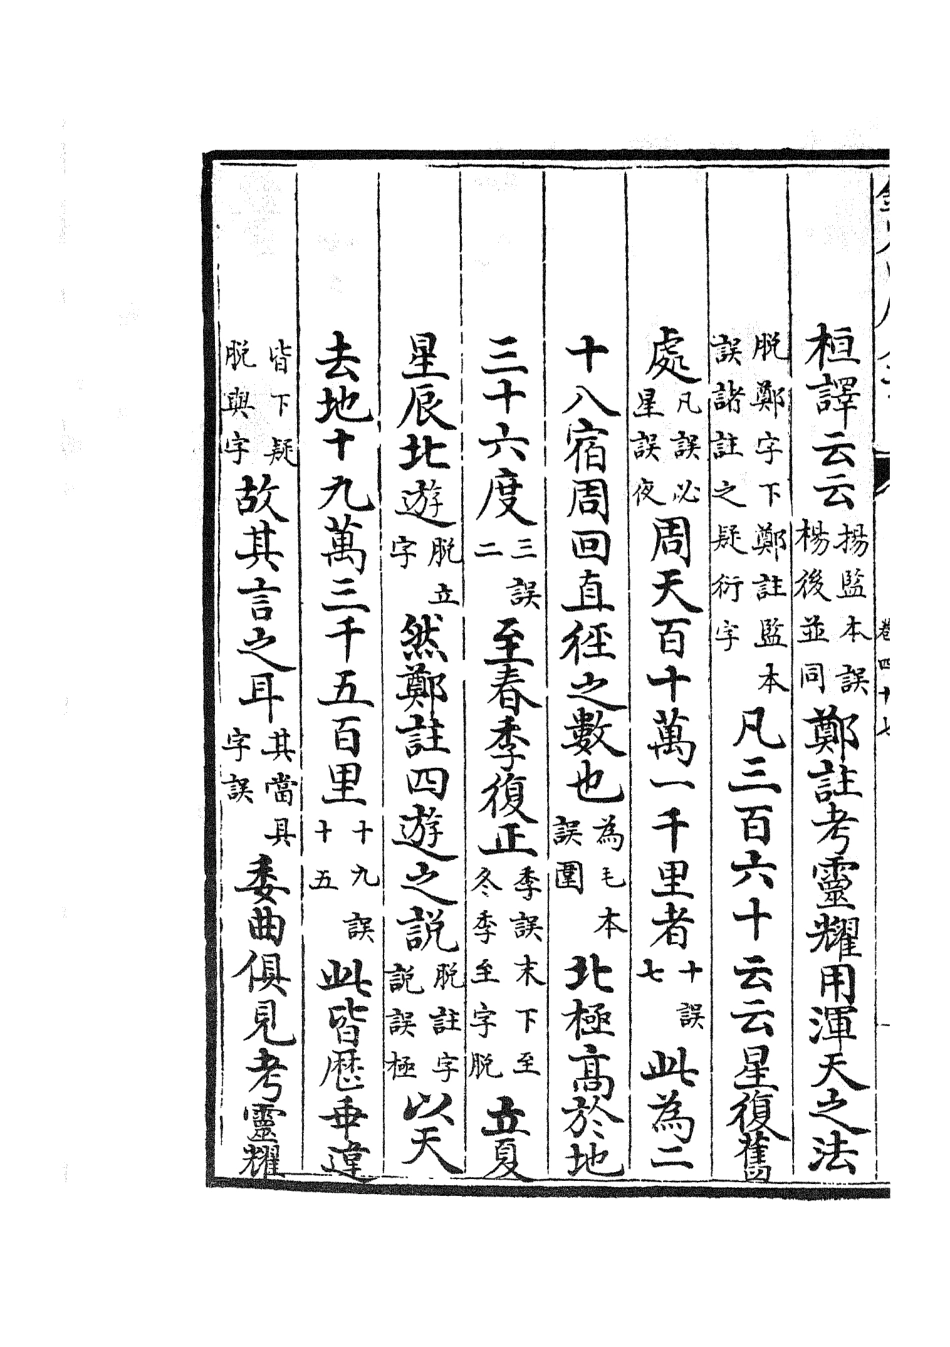 桓譯云云揚監本誤楊後並同鄭註考靈耀用渾天之法
脫鄭字下鄭註監本誤諸註之疑衍字凡三百六十云云星復舊
處凡誤必星誤夜周天百十萬一千里者十誤七此為二
十八宿周回直徑之數也為毛本誤圍北極高於地
三十六度三誤二至春季復正季誤末下至冬季至字脫立夏
星辰北遊脫立字然鄭註四遊之說脫註字說誤極以天
去地十九萬三千五百里十九誤十五此皆歷乖違
皆下疑脫與字故其言之耳其當具字誤委曲俱見考靈耀
卷四十七